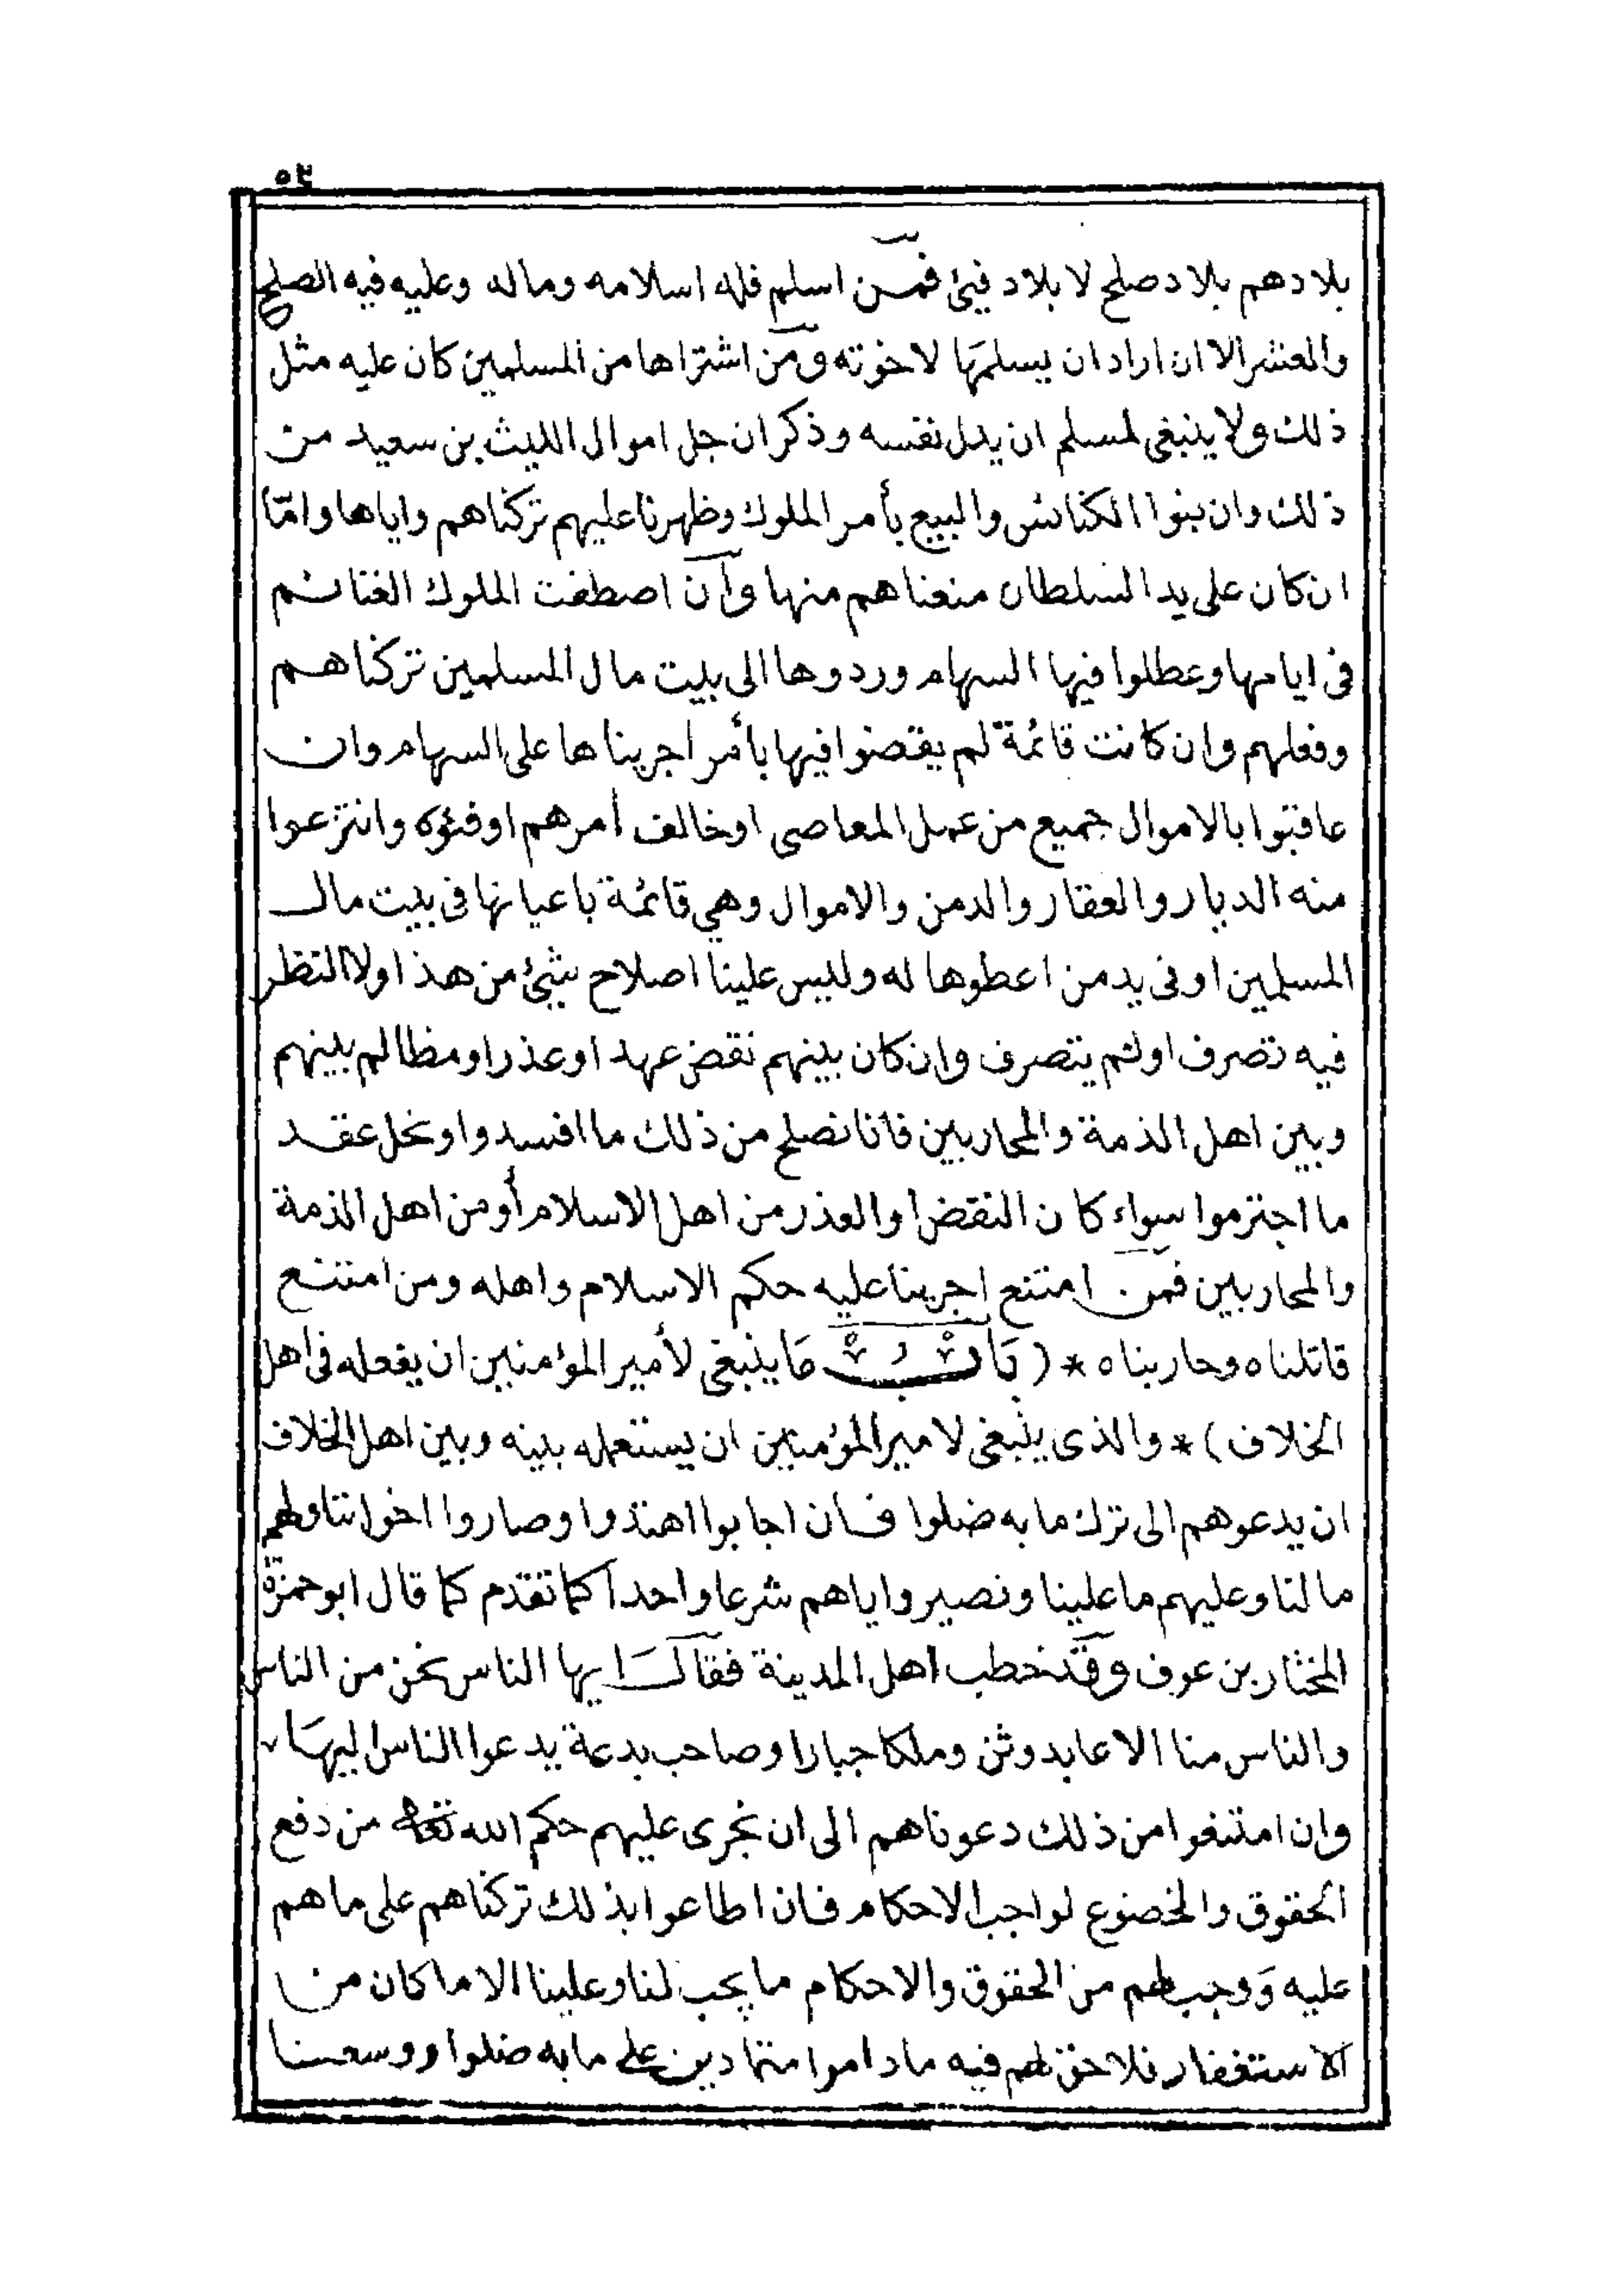 ٥٢
بلادهم بلاد صلح لا بلاد فيئ فمن اسلم فله اسلامه وماله وعليه فيه الصلح
والعشر الا ان اراد ان يسلمها لاخوته ومن اشتراها من المسلمين كان عليه مثل
ذلك ولا ينبغى لمسلم ان يدل نفسه وذكر ان جل اموال الليث بن سعيد من
ذلك وان بنوا الكنائس والبيع بأمر الملوك وظهرنا عليهم تركناهم واياها وامّا
ان كان على يد السلطان منعناهم منها وان اصطفت الملوك الغنائم
فى ايامها وعطلوا فيها السهام وردوها الى بيت مال المسلمين تركناهم
وفعلهم وان كانت قائمة لم يقضوا فيها بأمر اجريناها على السهام وان
عاقبوا بالاموال جميع من عمل المعاصى او خالف أمرهم او فئوه وانتزعوا
منه الديار والعقار والدمن والاموال وهي قائمة باعيانها فى بيت مال
المسلمين او فى يد من اعطوها له وليس علينا اصلاح شئ من هذا ولا النظر
فيه تصرف او لم يتصرف وان كان بينهم نقض عهد او عذر او مظالم بينهم
وبين اهل الذمة والمحاربين فانا نصلح من ذلك ما افسدوا ونحل عقد
ما اجترموا سواء كان النقض والعذر من اهل الاسلام أو من اهل الذمة
والمحاربين فمن امتنع اجرينا عليه حكم الاسلام واهله ومن امتنع
قاتلناه وحاربناه * ( باب ما ينبغى لأمير المؤمنين ان يفعله فى اهل
الخلاف ) * والذى ينبغى لامير المؤمنين ان يستعمله بينه وبين اهل الخلاف
ان يدعوهم الى ترك ما به ضلوا فان اجابوا اهتدوا وصاروا اخواننا ولهم
ما لنا وعليهم ما علينا ونصير واياهم شرعا واحدا كما تقدم كما قال ابو حمزة
المختار بن عوف وقد خطب اهل المدينة فقال ايها الناس نحن من الناس
والناس منا الا عابد وثن وملكا جبارا وصاحب بدعة يدعوا الناس اليها
وان امتنعوا من ذلك دعوناهم الى ان نجرى عليهم حكم الله تعالى من دفع
الحقوق والخضوع لواجب الاحكام فان اطاعوا بذلك تركناهم على ما هم
عليه ووجب لهم من الحقوق والاحكام ما يجب لنا وعلينا الا ما كان من
الاستغفار فلا حق لهم فيه ما داموا متمادين على ما به ضلوا ووسعنا